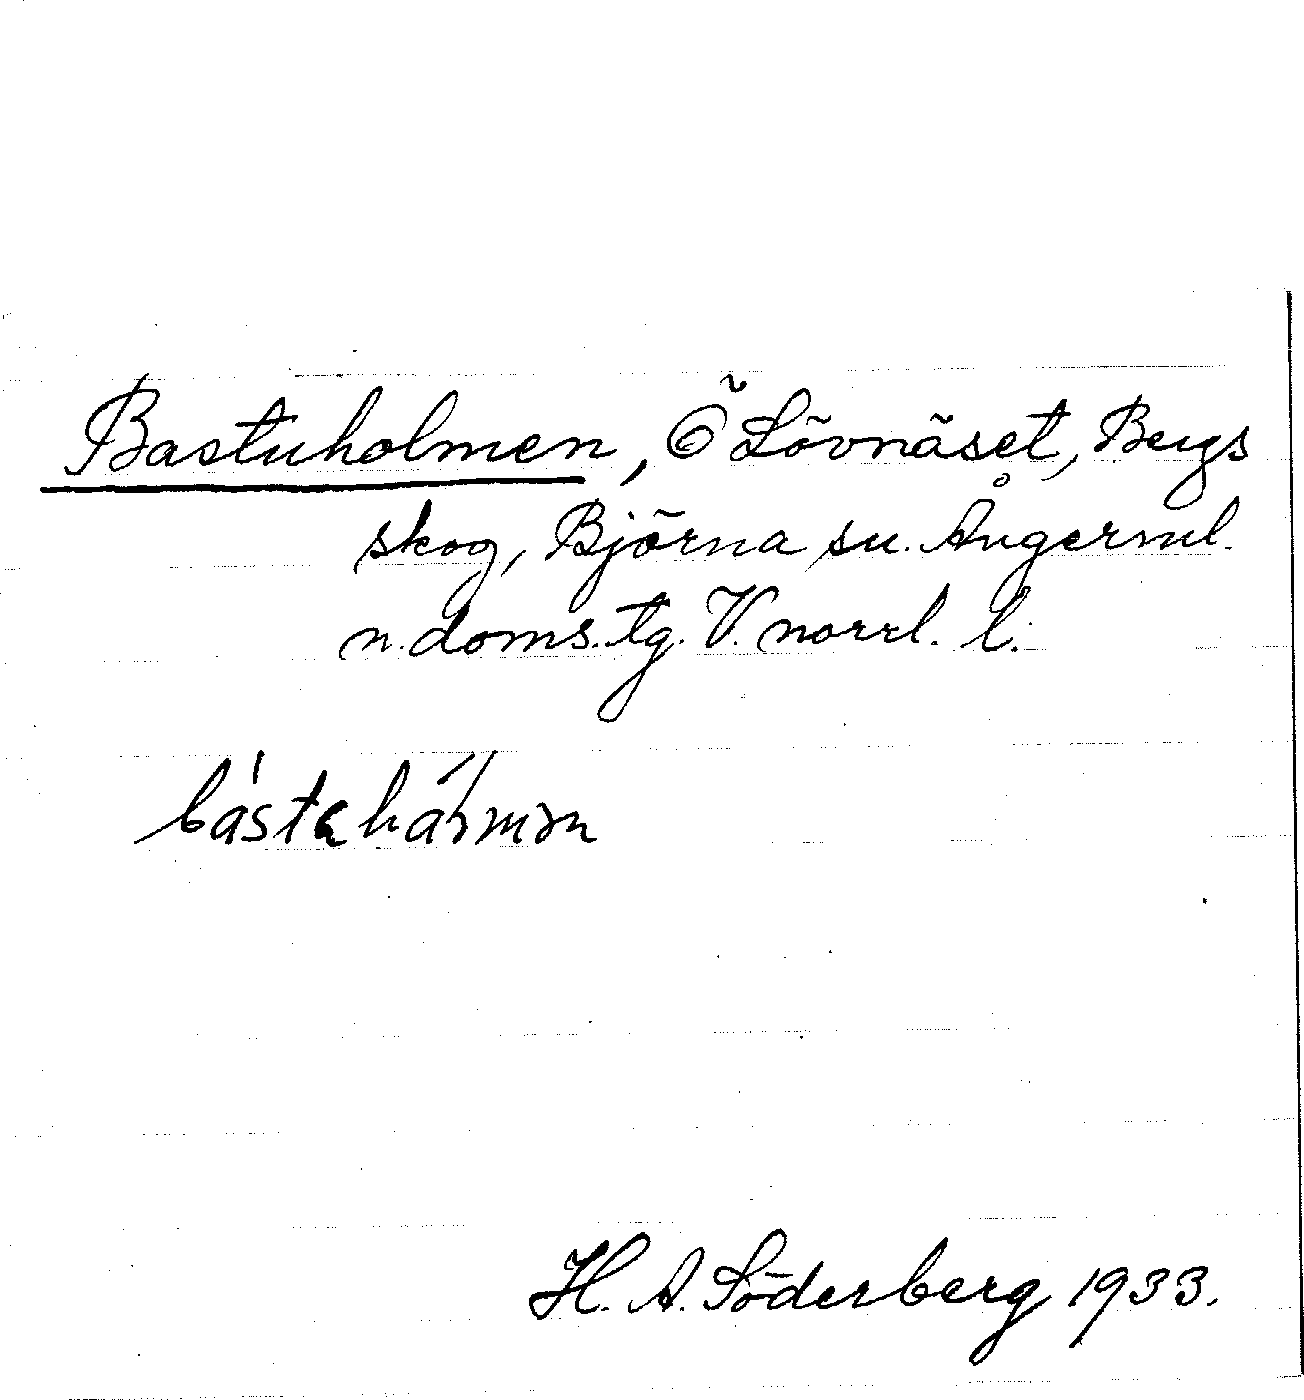 Bastuholmen, Ö Lövnäset, Bergs
skog, Björna sn. Ångerml.
n. doms. tg. V. norrl. l.
H. A. Söderberg 1933.